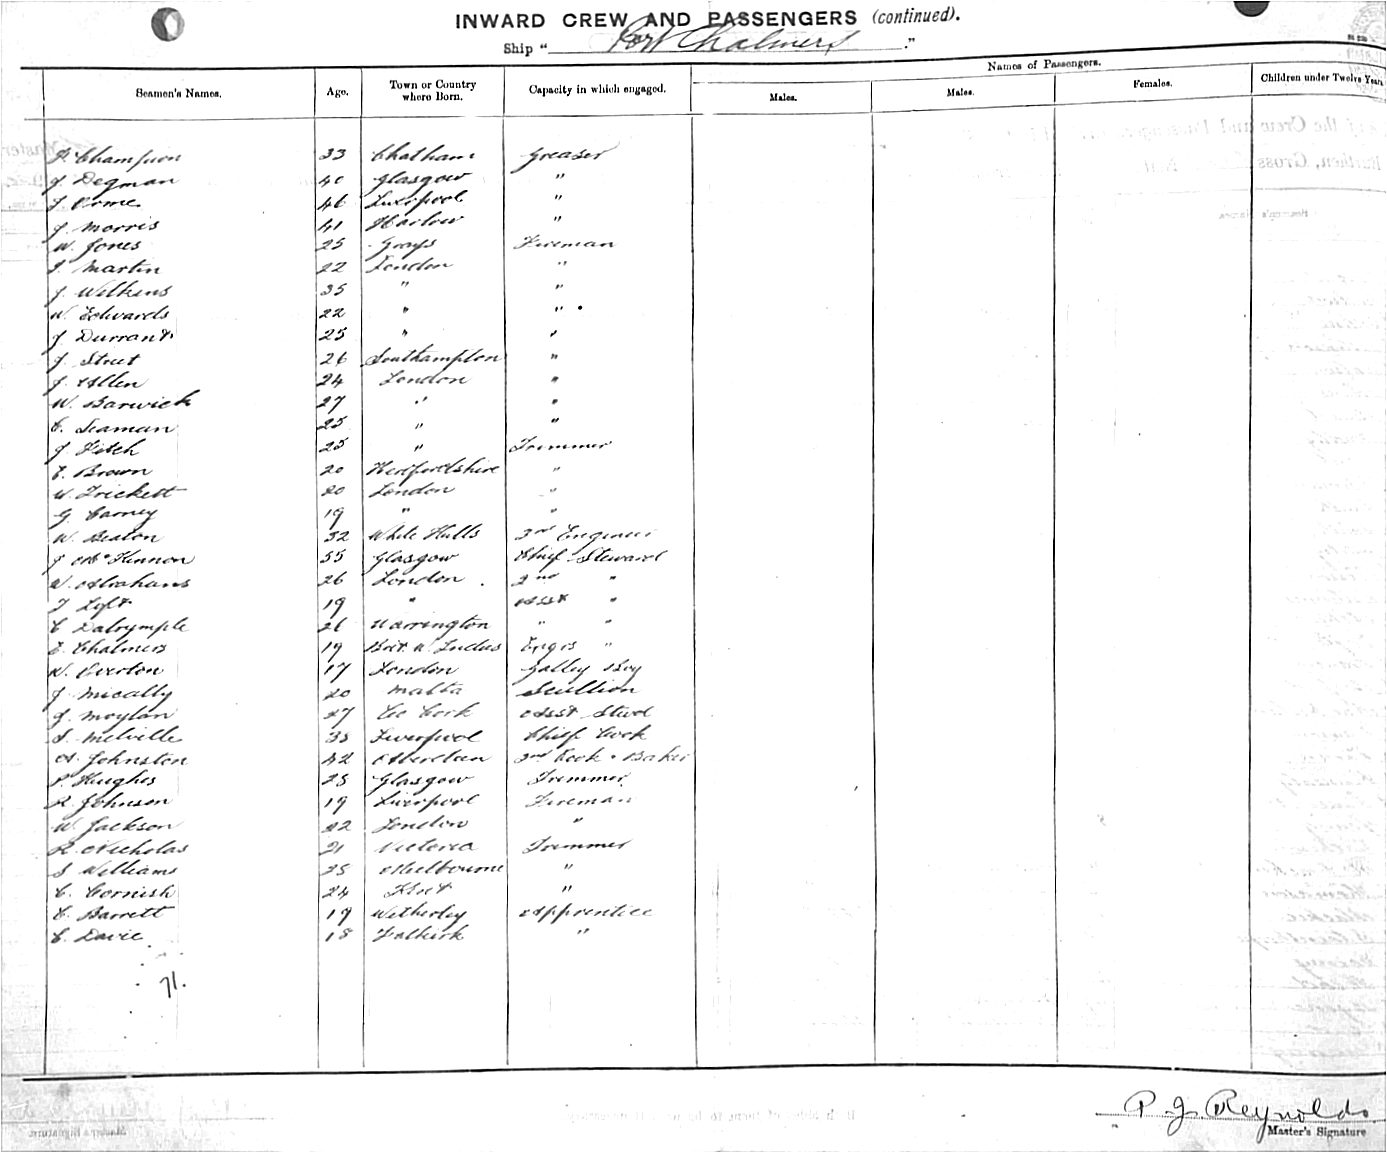 INWARD CREW AND PASSENGERS (continued).
Ship "Port Chalmers."
Seamen's Names. Age. Town or Country where Born. Capacity in which engaged. Names of Passengers. Males. Males. Females. Children under Twelve Years
P. Champion 33 Chatham Greaser
J. Degman 40 Glasgow "
J. Orme 46 Liverpool "
J. Morris 41 Harlow "
W. Jones 25 Grays Fireman
S. Martin 22 London "
J. Wilkins 35 " "
W. Edwards 22 " "
J. Durrant 25 " "
J. Street 26 Southampton "
J. Allen 24 London "
W. Barwick 27 " "
C. Seaman 25 " "
J. Fitch 25 " Trimmer
E. Brown 20 Hertfordshire "
W. Trickett 20 London "
G. Carney 19 " "
W. Beaton 32 White Hills 3rd Engineer
J. McKinnon 55 Glasgow Chief Steward
W. Abrahams 26 London 2nd "
T. Loft 19 " Asst "
C. Dalrymple 26 Warrington " "
E. Chalmers 19 Brit. W. Indies Engrs "
W. Overton 17 London Galley Boy
J. Mically 20 Malta Scullion
J. Moylan 27 Co Cork Asst Stwd
S. Melville 35 Liverpool Chief Cook
A. Johnston 42 Aberdeen 2nd Cook & Baker
P. Hughes 25 Glasgow Trimmer
R. Johnson 19 Liverpool Fireman
W. Jackson 22 London "
R. Nicholas 21 Victoria Trimmer
S. Williams 25 Melbourne "
C. Cornish 24 Kent "
C. Barrett 19 Wetherley Apprentice
C. Davie 18 Falkirk "
71.
P. J. Reynolds
Master's Signature